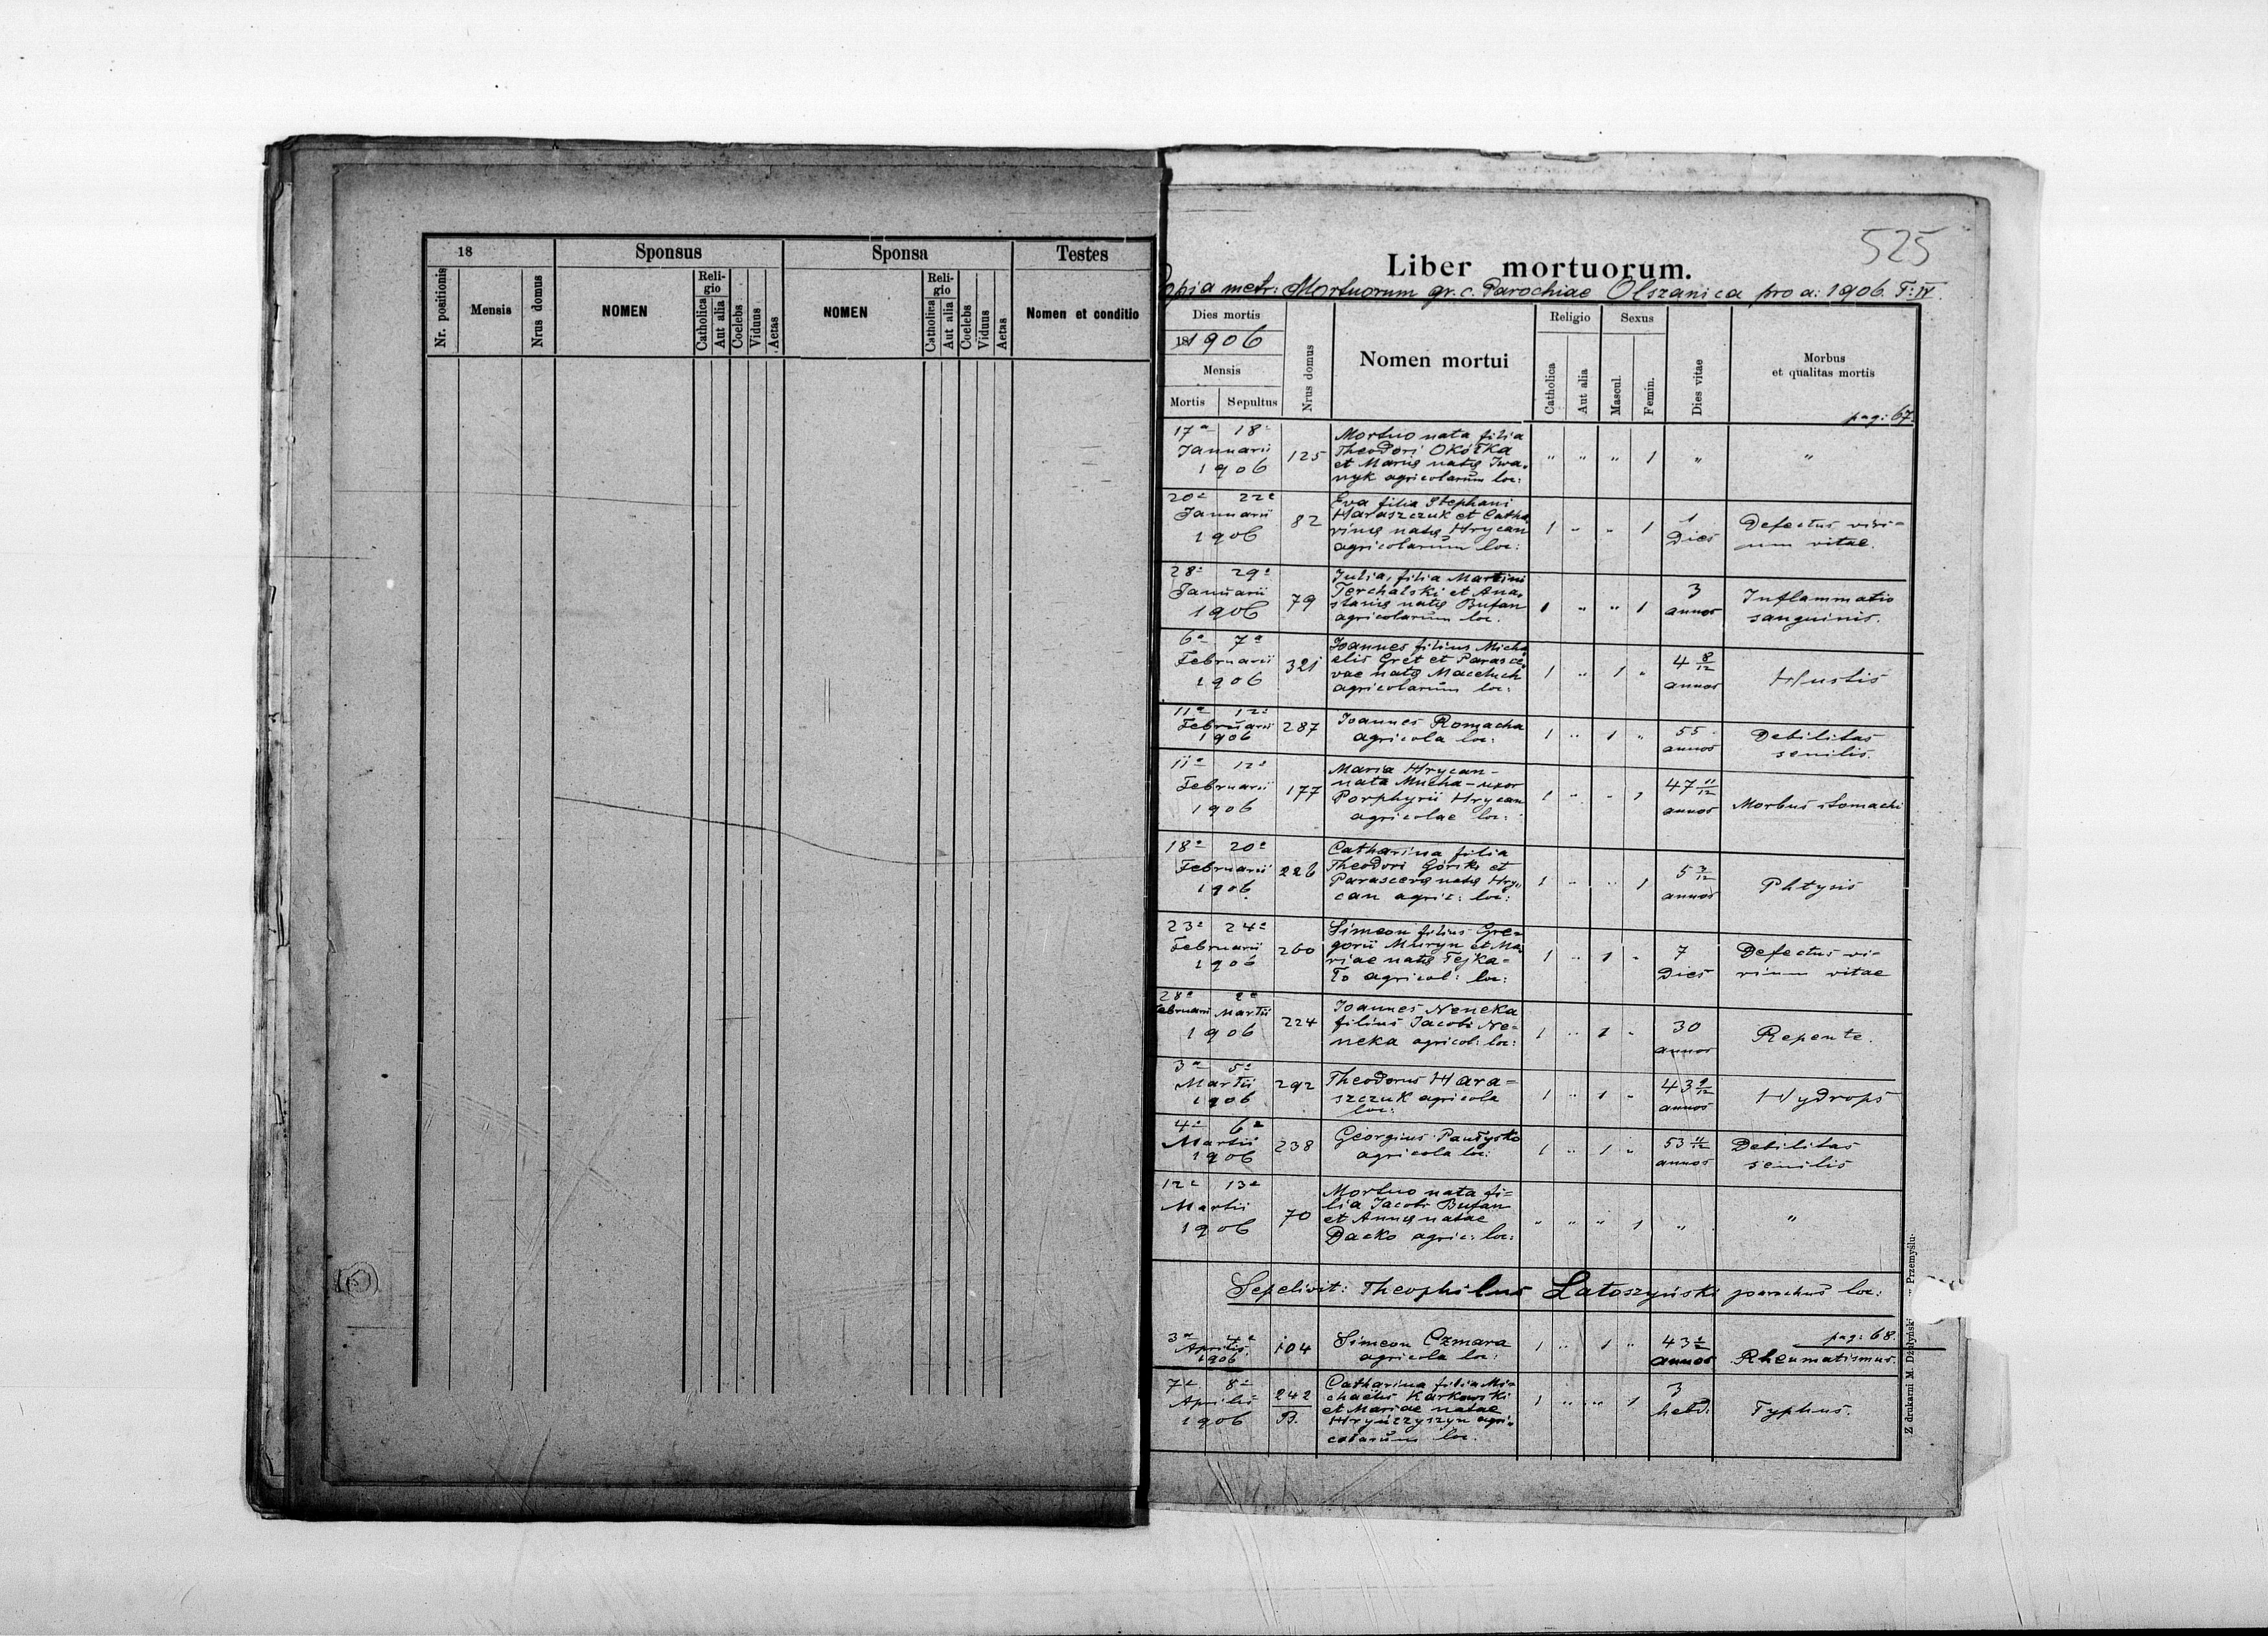 18
Sponsus
Sponsa
Testes
Nr. positionis
Mensis
Nrus domus
NOMEN
Reli-
gio
Catholica
Aut alia
Coelebs
Viduus
Aetas
NOMEN
Reli-
gio
Catholica
Aut alia
Coelebs
Viduus
Aetas
Nomen et conditio
525
Liber mortuorum.
opia metr: Mortuorum gr. c. Parochiae Olszanica pro a: 1906. T: IV.
Dies mortis
18 1906
Mensis
Mortis
Sepultus
Nrus domus
Nomen mortui
Religio
Catholica
Aut alia
Sexus
Mascul.
Femin.
Dies vitae
Morbus
et qualitas mortis
pag: 67.
17a 18a
Januarii
1906
125
Mortuo nata filia
Theodori Okółka
et Marię natę Iwa-
nyk agricolarum loc:
" " " 1 " "
20a 22a
Januarii
1906
82
Eva filia Stephani
Haraszczuk et Catha
rinę natę Hrycan
agricolarum loc:
1 " " 1
1
Dies
Defectus viri-
um vitae.
28a 29a
Januarii
1906
79
Julia, filia Martini
Terchalski et Ana-
stasię natę Bufan
agricolarum loc.
1 " " 1
3
annos
Inflammatio
sanguinis.
6a 7a
Februarii
1906
321
Joannes filius Micha
elis Gret et Parasce
vae natę Macełuch
agricolarum loc:
1 " 1 "
4 8/12
annos
Hustis
11a 12a
Februarii
1906
287
Joannes Romacha
agricola loc:
1 " 1 "
55
annos
Debilitas
senilis.
11a 12a
Februarii
1906
177
Maria Hrycan-
nata Mucha-uxor
Porphyrii Hrycan
agricolae loc:
1 " " 1
47 11/12
annos
Morbus stomachi
18a 20a
Februarii
1906.
226
Catharina filia
Theodori Górski et
Parascevę natę Hry-
can agric: loc:
1 " " 1
5
annos
Phtysis
23a 24a
Februarii
1906
260
Simeon filius Gre-
gorii Muryn et Ma
riae natę Fejka-
ło agricol: loc:
1 " 1 "
7
Dies
Defectus vi-
rium vitae
28a 2a
Februarii Martii
1906
224
Joannes Neneka
filius Jacobi Ne-
neka agricol: loc:
1 " 1 "
30
annos
Repente.
3a 5a
Martii
1906
292
Theodorus Hara-
szczuk agricola
loc:
1 " 1 "
43 9/12
annos
Hydrops
4a 6a
Martii
1906
238
Georgius Pautysko
agricola loc:
1 " 1 "
53 11/12
annos
Debilitas
senilis
12a 13a
Martii
1906
70
Mortuo nata fi-
lia Jacobi Bufan
et Annę natae
Dacko agric: loc:
" " " 1 " "
Sepelivit: Theophilus Latoszyński parochus loc:
pag: 68.
3a 4a
Aprilis
1906
104
Simeon Czmara
agricola loc:
1 " 1 "
43 1/2
annos
Rheumatismus.
7a 8a
Aprilis
1906
242
B.
Catharina filia Mi-
chaelis Karkowski
et Mariae natae
Hryńczyszyn agri-
colarum loc.
1 " " 1
3
hebd:
Typhus.
Z drukarni M. Dżułyński Przemyślu-